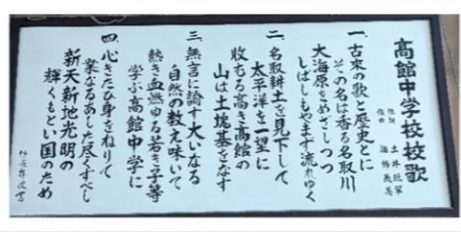 高館中学校校歌
作詞 土井晩翠
作曲 海鋒義美
一、古来の歌と歴史とに
その名は香る名取川
大海原をめざしつつ
しばしもやまず流れゆく
二、名取耕土を見下して
太平洋を一望に
收むる高き高館の
山は土塊基をなす
三、無言に諭す大いなる
自然の教え味いて
熱き血燃ゆる若き子等
学ぶ高館中学に
四、心きたひ身をねりて
業なるあした尽くすべし
新天新地光明の
輝くもとい国のため